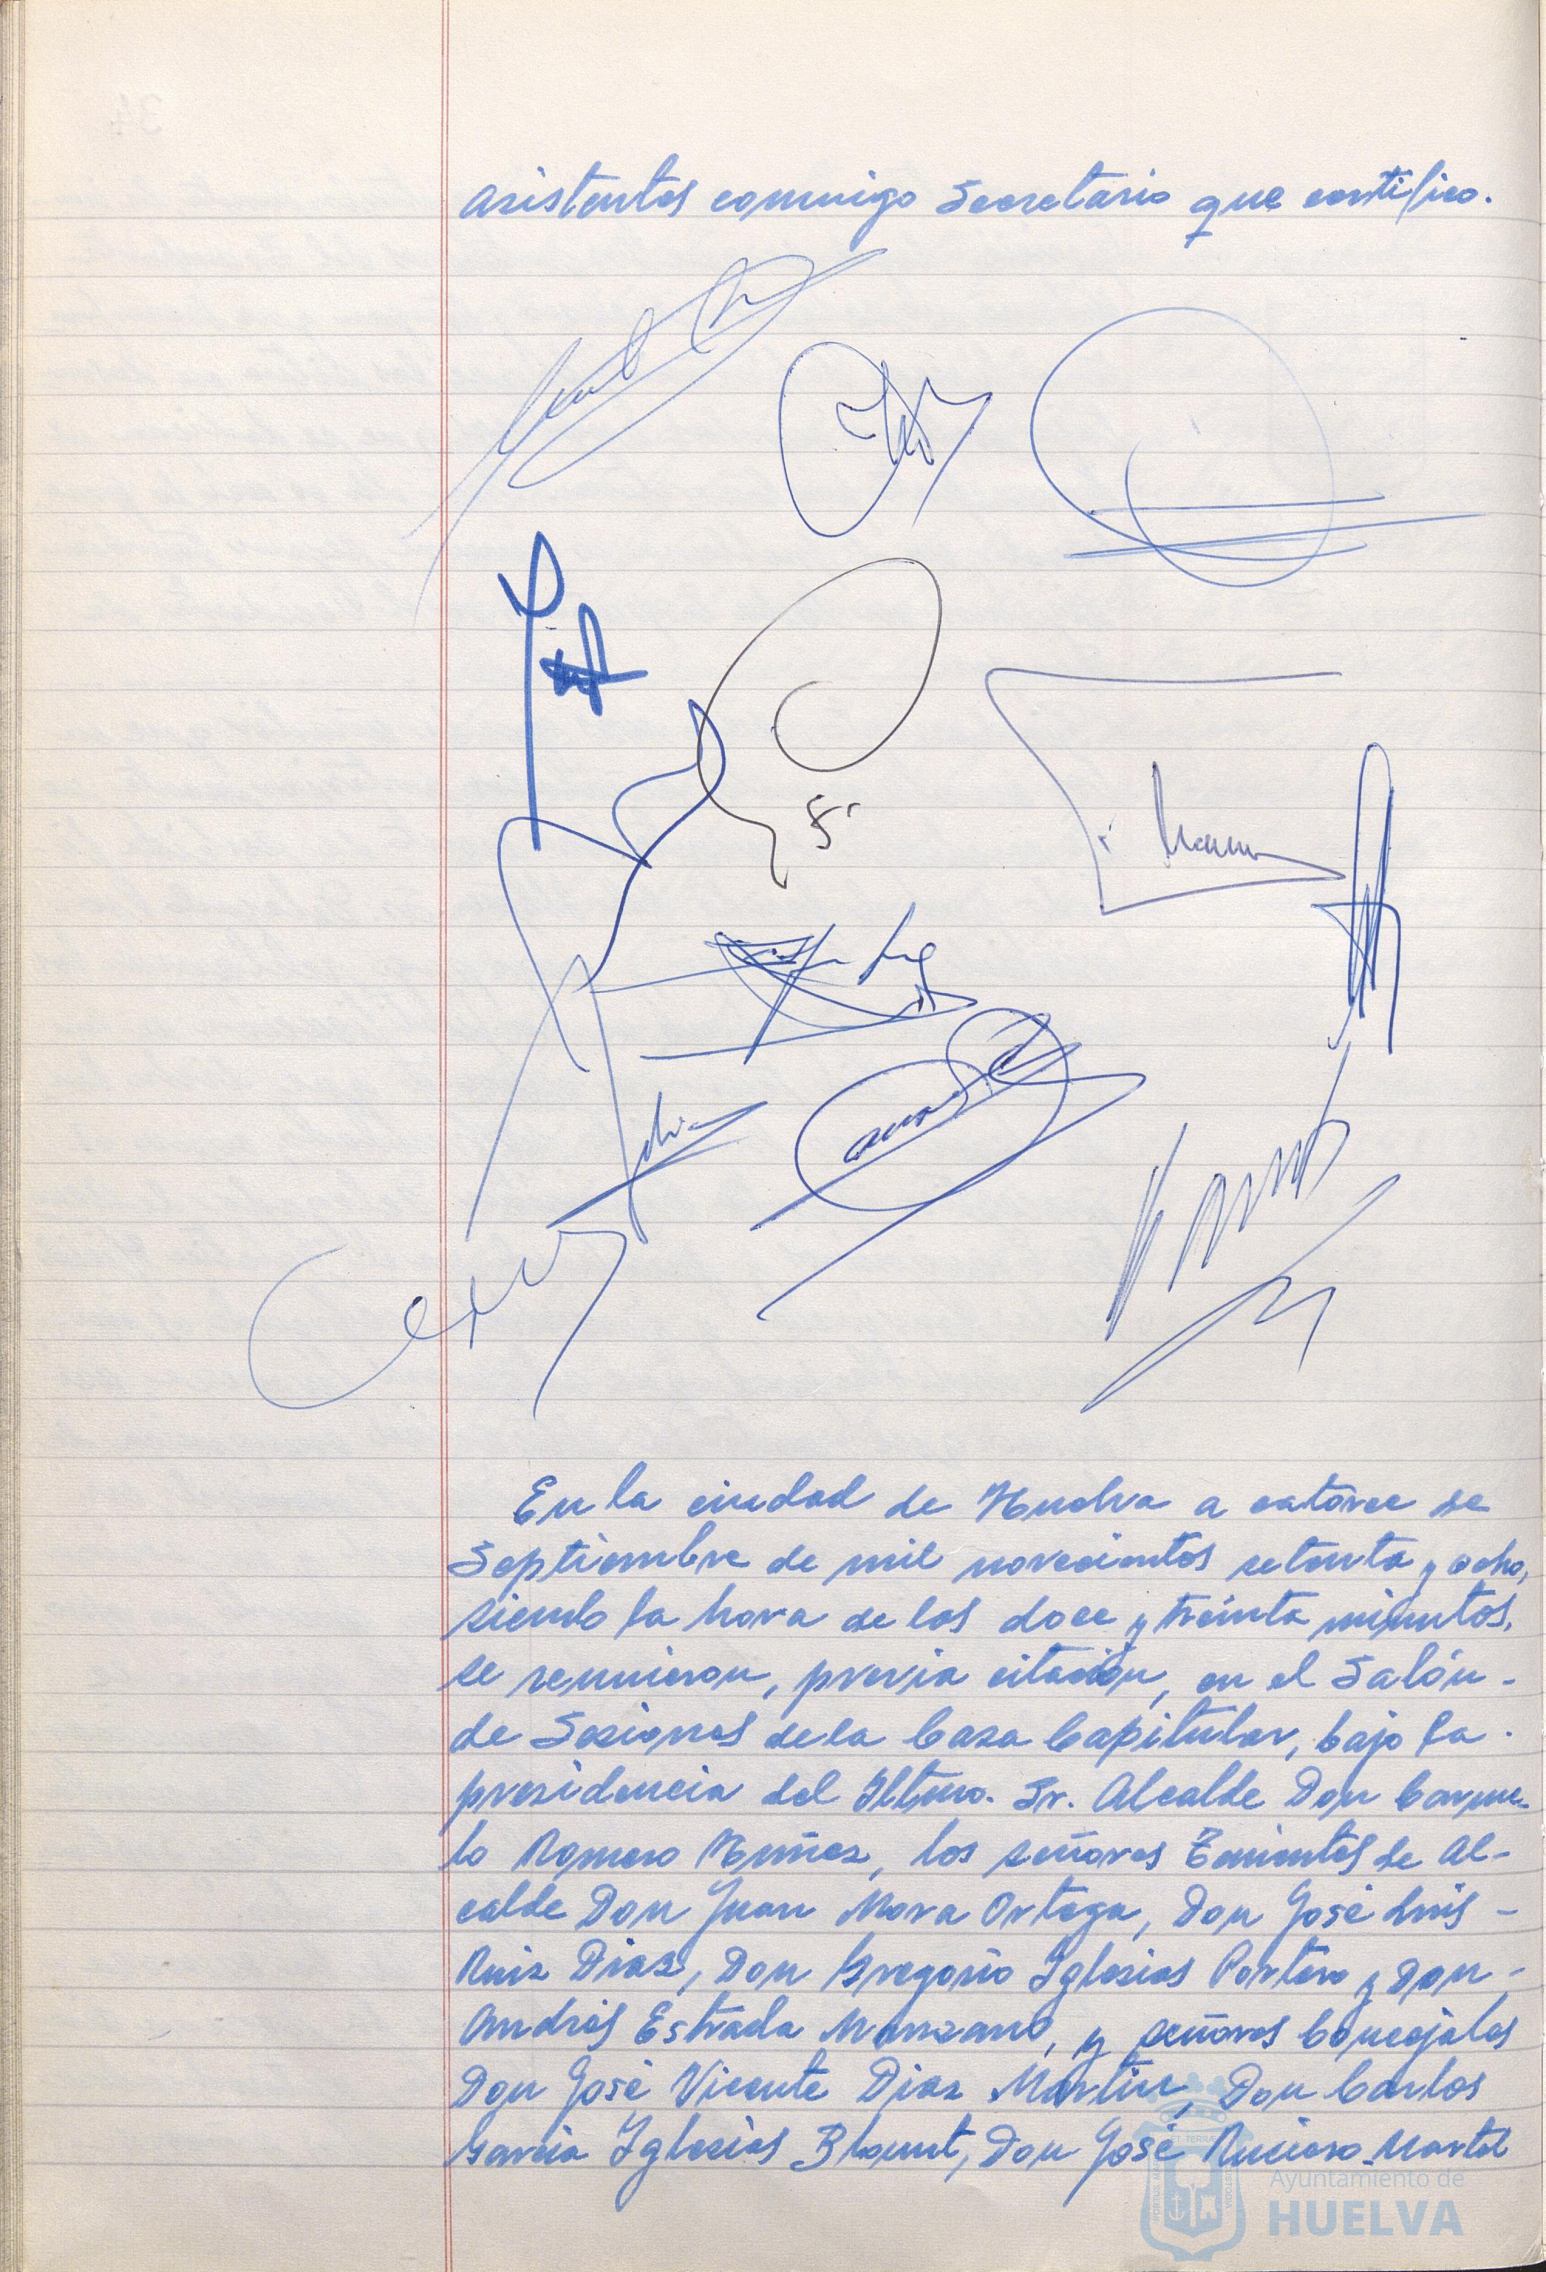 asistentes conmigo Secretario que certifico.
En la ciudad de Huelva a catorce de
Septiembre de mil novecientos setenta y ocho,
siendo la hora de las doce y treinta minutos,
se reunieron, previa citación, en el Salón -
de Sesiones de la Casa Capitular, bajo la
presidencia del Iltmo. Sr. Alcalde Don Carme-
lo Romero Núñez, los señores Tenientes de Al-
calde Don Juan Mora Ortega, Don José Luis -
Ruiz Diaz, Don Gregorio Iglesias Portero y Don -
Andrés Estrada Manzano, y señores Concejales
Don José Vicente Diaz Martin, Don Carlos
Garcia Iglesias Blount, Don José Martel
Ayuntamiento de
HUELVA